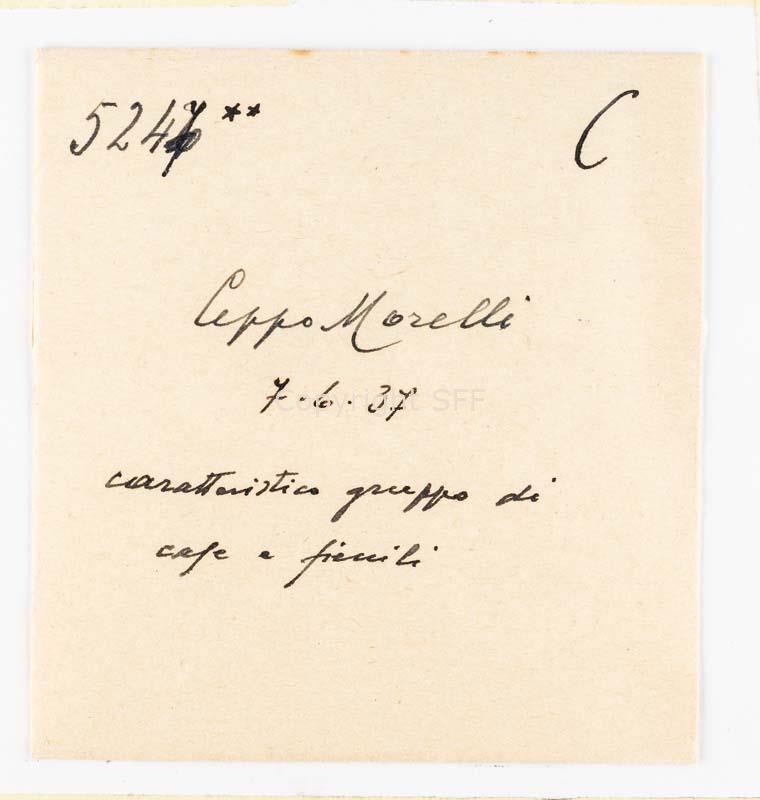 5247 ** C
Ceppo Morelli
7.6.37
Copyright SFF
caratteristico gruppo di
case e fienili